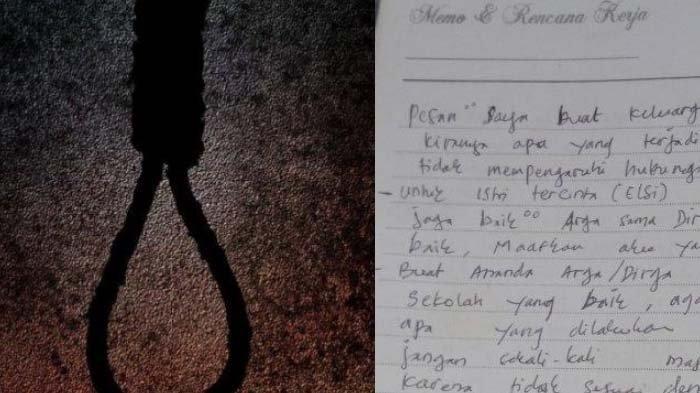 Memo & Rencana Kerja
Pesan" Saya buat keluarg
Kiranya apa yang terjadi
tidak mempengaruhi hubung
- untuk Istri tercinta (Elsi)
jaga baik°° Arga sama Dir
baik, Maafkan aku ya
- Buat Ananda Arga/Dirga
Sekolah yang baik, aga
apa yang dilakukan
jangan sekali-kali ma
karena tidak sesuai den